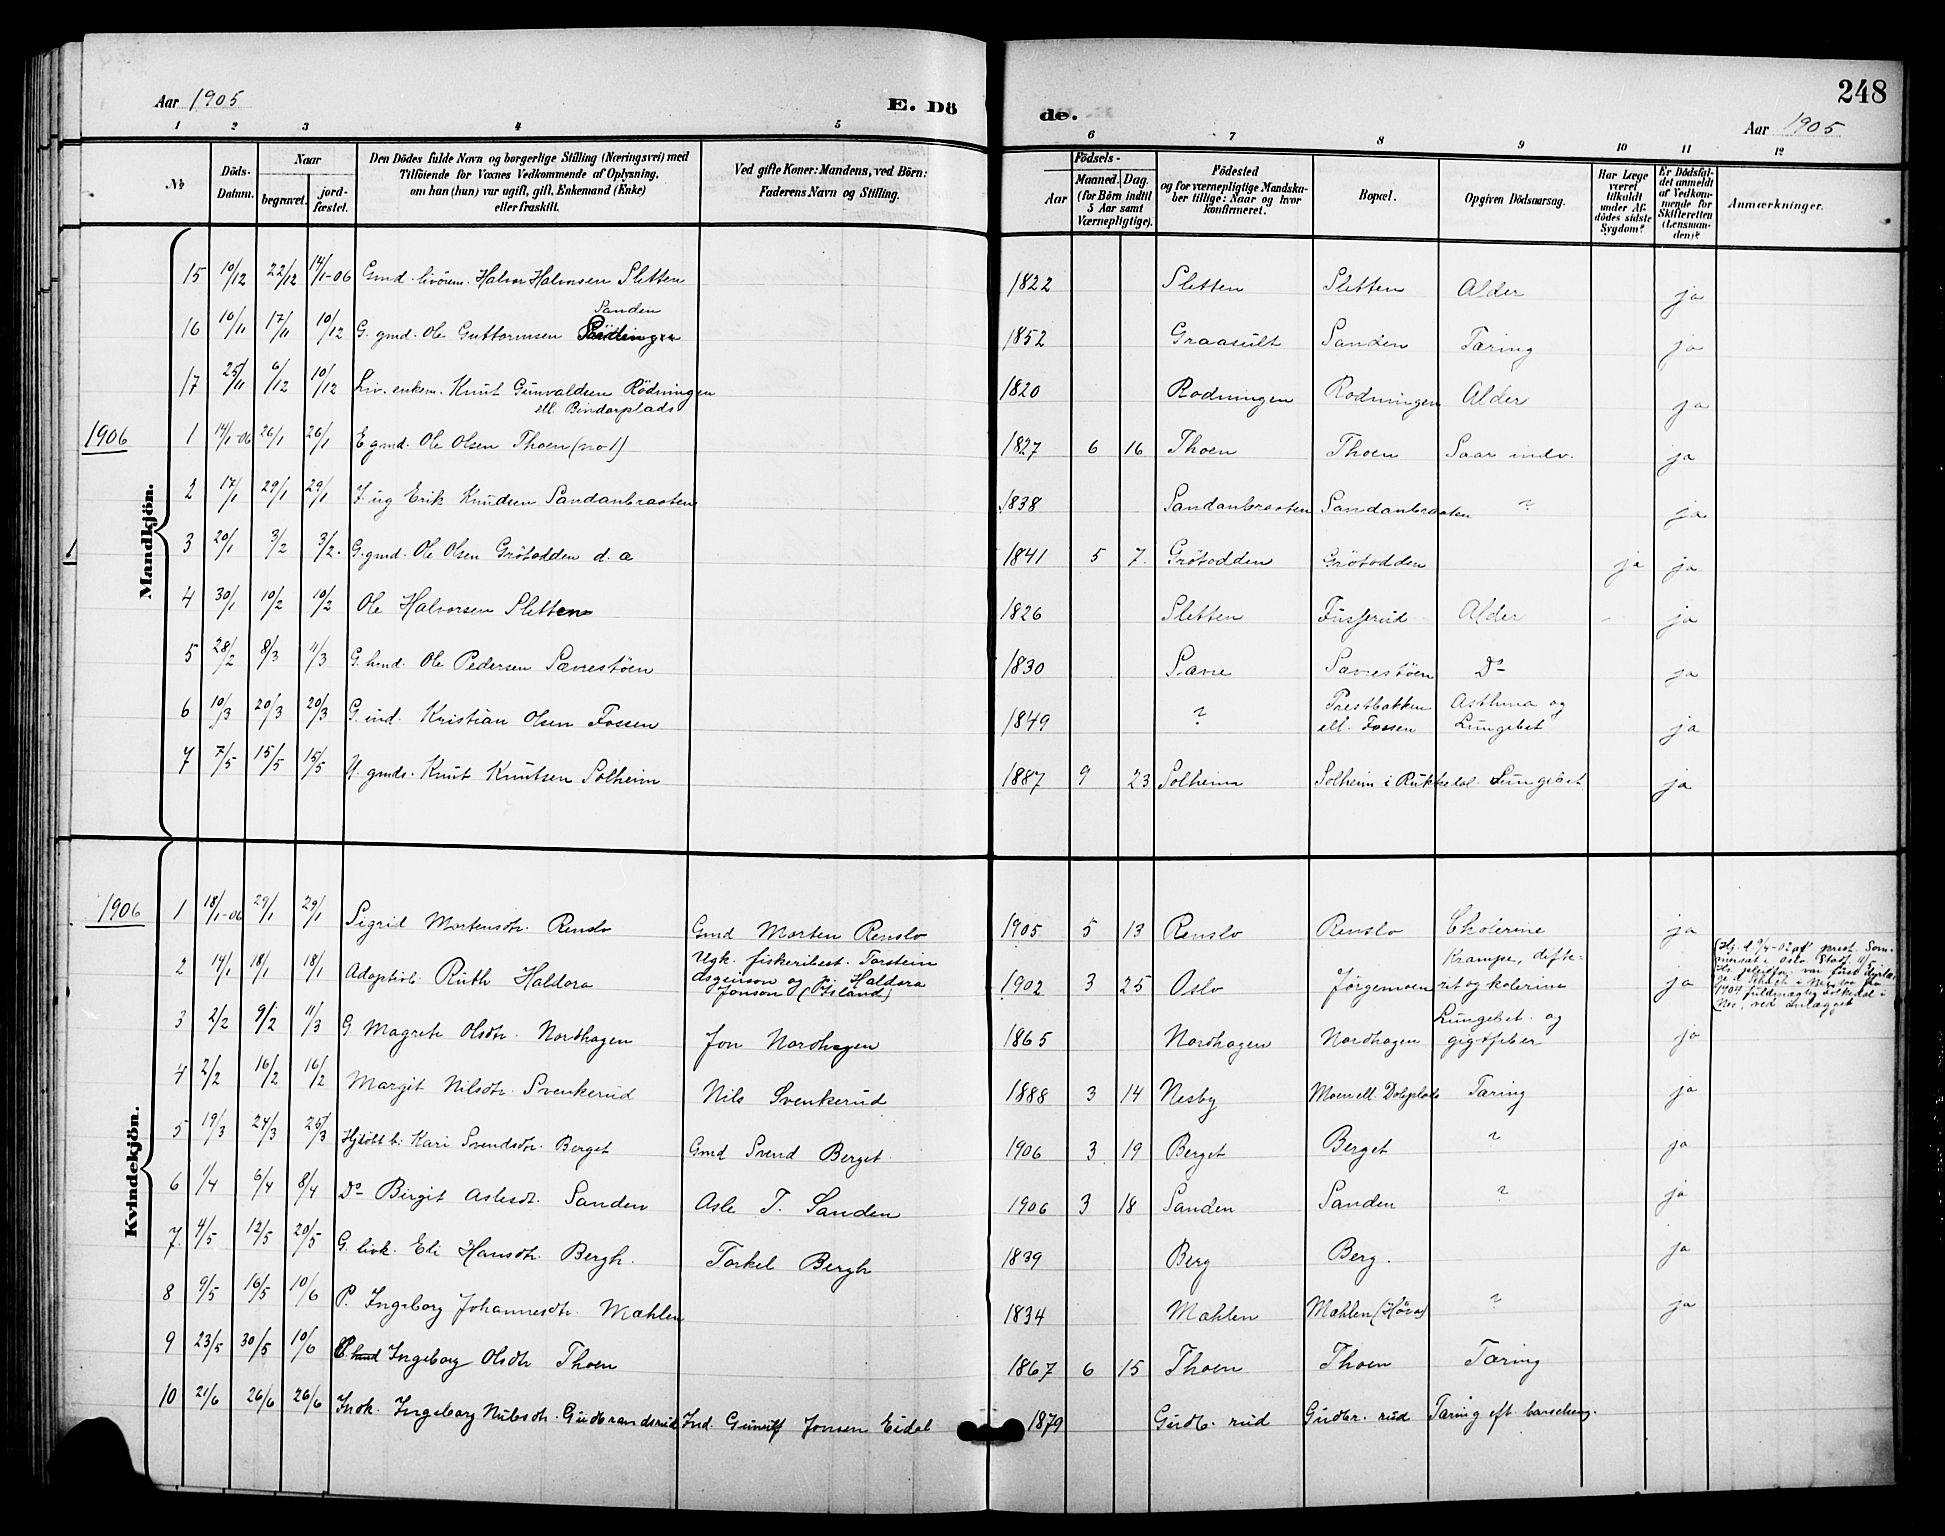 248
Aar 1905
E. Dö
de.
Aar 1905
1 2 3 4 5 6 7 8 9 10 11 12
№
Döds-Datum.
Naar
begravet.
jordfæstet.
Den Dödes fulde Navn og borgerlige Stilling (Næringsvei) med
Tilföiende for Voxnes Vedkommende af Oplysning,
om han (hun) var ugift, gift, Enkemand (Enke)
eller fraskilt.
Ved gifte Koner: Mandens, ved Börn:
Faderens Navn og Stilling.
Födsels-
Aar
Maaned. Dag
(for Börn indtil
5 Aar samt
Værnepligtige).
Födested
og for værnepligtige Mandska-
ber tillige: Naar og hvor
konfirmeret.
Bopæl.
Opgiven Dödsaarsag.
Har Læge
været
tilkaldt
under Af-
dödes sidste
Sygdom?
Er Dödsfal-
det anmeldt
af Vedkom-
mende for
Skifteretten
(Lensman-
den)?
Anmærkninger.
Mandkjön.
15 10/12 22/12 14/1-06 Gmd. livörem. Halvor Halvorsen Sletten 1822 Sletten Sletten Alder ja
Sanden
16 10/11 17/11 10/12 G. gmd. Ole Guttormsen 1852 Graasult Sanden Tæring ja
17 25/11 6/12 10/12 Liv. enkem. Knut Gunvaldsen Rödningen 1820 Rodningen Rodningen Alder ja
ell. Bindorplads
1906 1 14/1-06 26/1 26/1 E gmd. Ole Olsen Thoen (no 1) 1827 6 16 Thoen Thoen Saar indv. ja
2 17/1 29/1 29/1 ug Erik Knudsen Sandanbraaten 1838 Sandanbraaten Sandanbraaten ? ja
3 20/1 3/2 3/2. G. gmd. Ole Olsen Grötodden d. a 1841 5 7. Grötodden Grötodden ja ja
4 30/1 10/2 10/2 Ole Halvorsen Sletten 1826 Sletten Fusserud Alder - ja
5 28/2 8/3 11/3 G. hmd. Ole Pedersen Sævrestöen 1830 Sævre Sævrestöen Do ja
6 10/3 20/3 20/3 G. ind. Kristian Olsen Fossen 1849 ? Prestbakken Asthma og
ell. Fossen Lungebet ja
7 7/5 15/5 15/5 U. gmds. Knut Knutsen Solheim 1887 9 23 Solheim Solheim i Rukkedal. Lungebet ja
Kvindekjön.
1906 1 18/1-06 29/1 29/1 Sigrid Mortensdtr. Renslo Gmd Morten Renslo 1905 5 13 Renslo Renslo Cholerine ja
2 14/1 18/1 18/1 Adoptivb. Ruth Haldora Ugk. fiskeribest. Torstein
Asgeirson og p. Haldora
Jonson (Island) 1902 3 25 Oslo Jörgemoen Krampe, difte-
rit og kolerine ja
3 2/2 9/2 11/3 G Magrete Olsdtr. Nordhagen Jon Nordhagen 1865 Nordhagen Nordhagen Lungebet. og
gigtfeber ja
4 2/2 16/2 16/2 Margit Nilsdtr. Svenkerud Nils Svenkerud 1888 3 14 Nesby Moen ell. Dokplads Tæring ja
5 19/3 24/3 25/3 Hjdöbt b. Kari Svendsdtr. Berget Gmd Svend Berget 1906 3 19 Berget Berget ? ja
6 1/4 6/4 8/4 Do Birgit Aslesdtr. Sanden Asle T. Sanden 1906 3 18 Sanden Sanden ? ja
7 4/5 12/5 20/5 G. livk. Eli Hansdtr. Bergh. Torkel Bergh 1839 Berg Berg. ja
8 9/5 16/5 10/6 P. Ingeborg Johannesdtr. Mæhlen 1834 Mæhlen Mæhlen (Höva) ? ja
9 23/5 30/5 10/6 Ingeborg Olsdtr Thoen 1867 6 15 Thoen Thoen Tæring
10 21/6 26/6 26/6 Indk. Ingeborg Nubsdtr. Gudbrandsrud Ind. Gunulf Jonsen Eidal 1879 Gudb. rud Gudbr. rud Tæring eft barselseng.